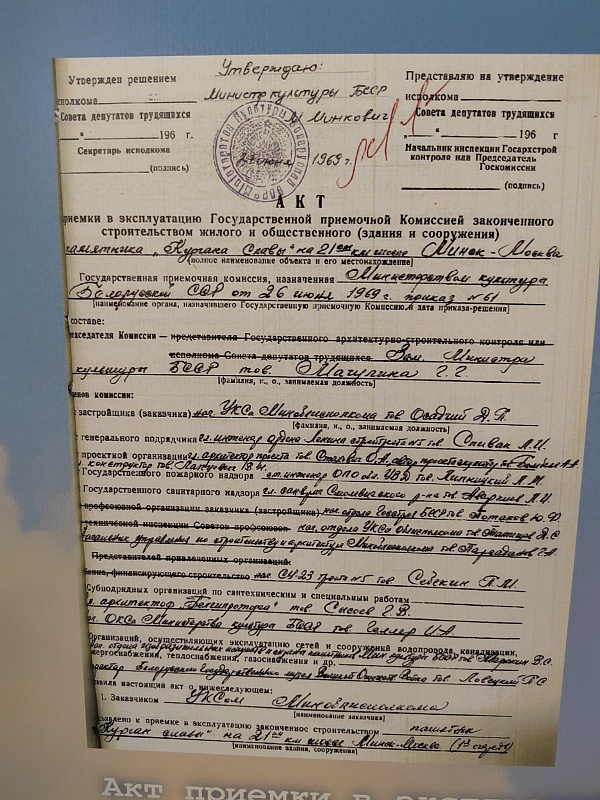 Утверждаю:
Утвержден решением
Министр культуры БССР
Представляю на утверждение
сполкома
исполкома
Совета депутатов трудящихся
М Минкович
Совета депутатов трудящихся
"        "        196   г.
июня 1969 г.
"        "        196   г
Секретарь исполкома
Начальник инспекции Госархстрой
контроля или Председатель
Госкомиссии
(подпись)
(подпись)
АКТ
риемки в эксплуатацию Государственной приемочной Комиссией законченного
строительством жилого и общественного (здания и сооружения)
памятника „Кургана Славы" на 21ом км шоссе Минск-Москва
(полное наименование объекта и его местонахождение)
Государственная приемочная комиссия, назначенная Министерством культуры
Белорусской ССР от 26 июня 1969 г. приказ №61
(наименование органа, назначившего Государственную приемочную Комиссию и дата приказа-решения)
составе:
едседателя Комиссии — представителя Государственного архитектурно-строительного контроля или
исполкома Совета депутатов трудящихся Зам. Министра
культуры БССР тов.
(фамилия, и., о., занимаемая должность)
енов комиссии:
застройщика (заказчика) нач. УКСа Миноблисполкома тов Осадчий Д.П.
(фамилия, и., о., занимаемая должность)
генерального подрядчика гл. инженер ордена Ленина стройтреста №5 тов. Спивак Л.И.
проектной организации гл. архитектор проекта тов. Стахович О.А, автор проекта скульптор тов
конструктор тов.
Государственного пожарного надзора ст. инженер ОПО обл. УВД тов.
Государственного санитарного надзора гл. санврач Смолевичского р-на тов
профсоюзной организации заказчика (застройщика) нач отдела Госстроя БССР тов Потапов Ю.Ф.
технической инспекции Советов профсоюзов нач. отдела УКСа облисполкома тов
начальник управления по строительству и архитектуре Миноблисполкома тов.
Представителей привлеченных организаций:
банка, финансирующего строительство нач СУ-23 треста №5 тов Себекин П.М.
Субподрядных организаций по сантехническим и специальным работам
архитектор „Белгипроторга" тов Сысоев Г.В.
ОКСа Министерства культуры БССР тов. Геллер И.А.
Организаций, осуществляющих эксплуатацию сетей и сооружений водопровода, канализации,
нергоснабжения, теплоснабжения, газоснабжения и др.
директор Белорусского Государственного музея Великой Отечеств. Войны тов
вила настоящий акт о нижеследующем:
1. Заказчиком УКСом Миноблисполкома
(наименование заказчика)
дъявлено к приемке в эксплуатацию законченное строительством памятник
„Курган славы" на 21ом км шоссе Минск-Москва
(наименование здания, сооружения)
Акт приемки в